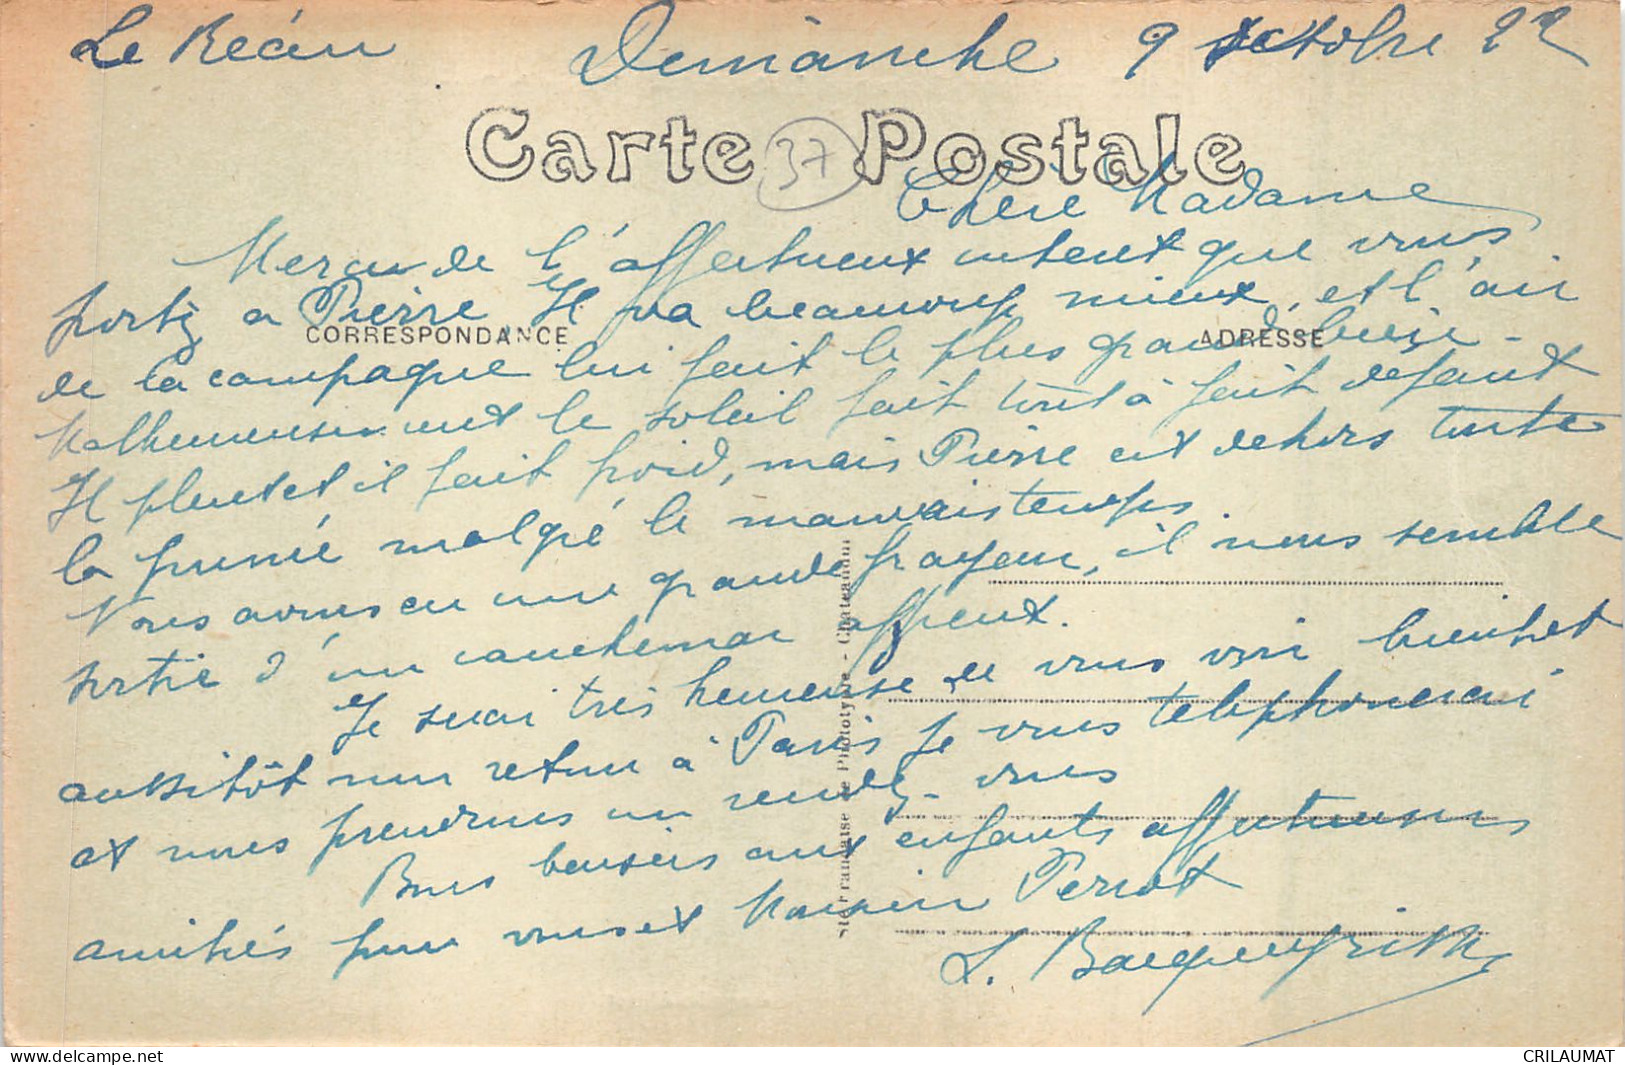 Le Réau Demanche 9 octobre 22
Carte Postale
37
Chere Madame
Merci de l'affectueux interet que vous
portez a Pierre Il va beaucoup mieux, et l'air
CORRESPONDANCE
ADRESSE
de la campagne lui fait le plus grand bien -
Malheureusement le soleil fait tout à fait defaut
Il pleut et il fait froid, mais Pierre est dehors toute
la journée malgré le mauvais temps.
Nous avons eu une grande frayeur, il nous semble
sortir d'un cauchemar affreux.
Je serai très heureuse de vous voir bientot
aussitôt mon retour à Paris je vous telephonerai
et nous prendrons un rendez-vous
Bons baisers aux enfants affectueuses
amitiés pour vous et Monsieur Perrot
L.
Sté Française de Phototypie - Chateaudun
CRILAUMAT